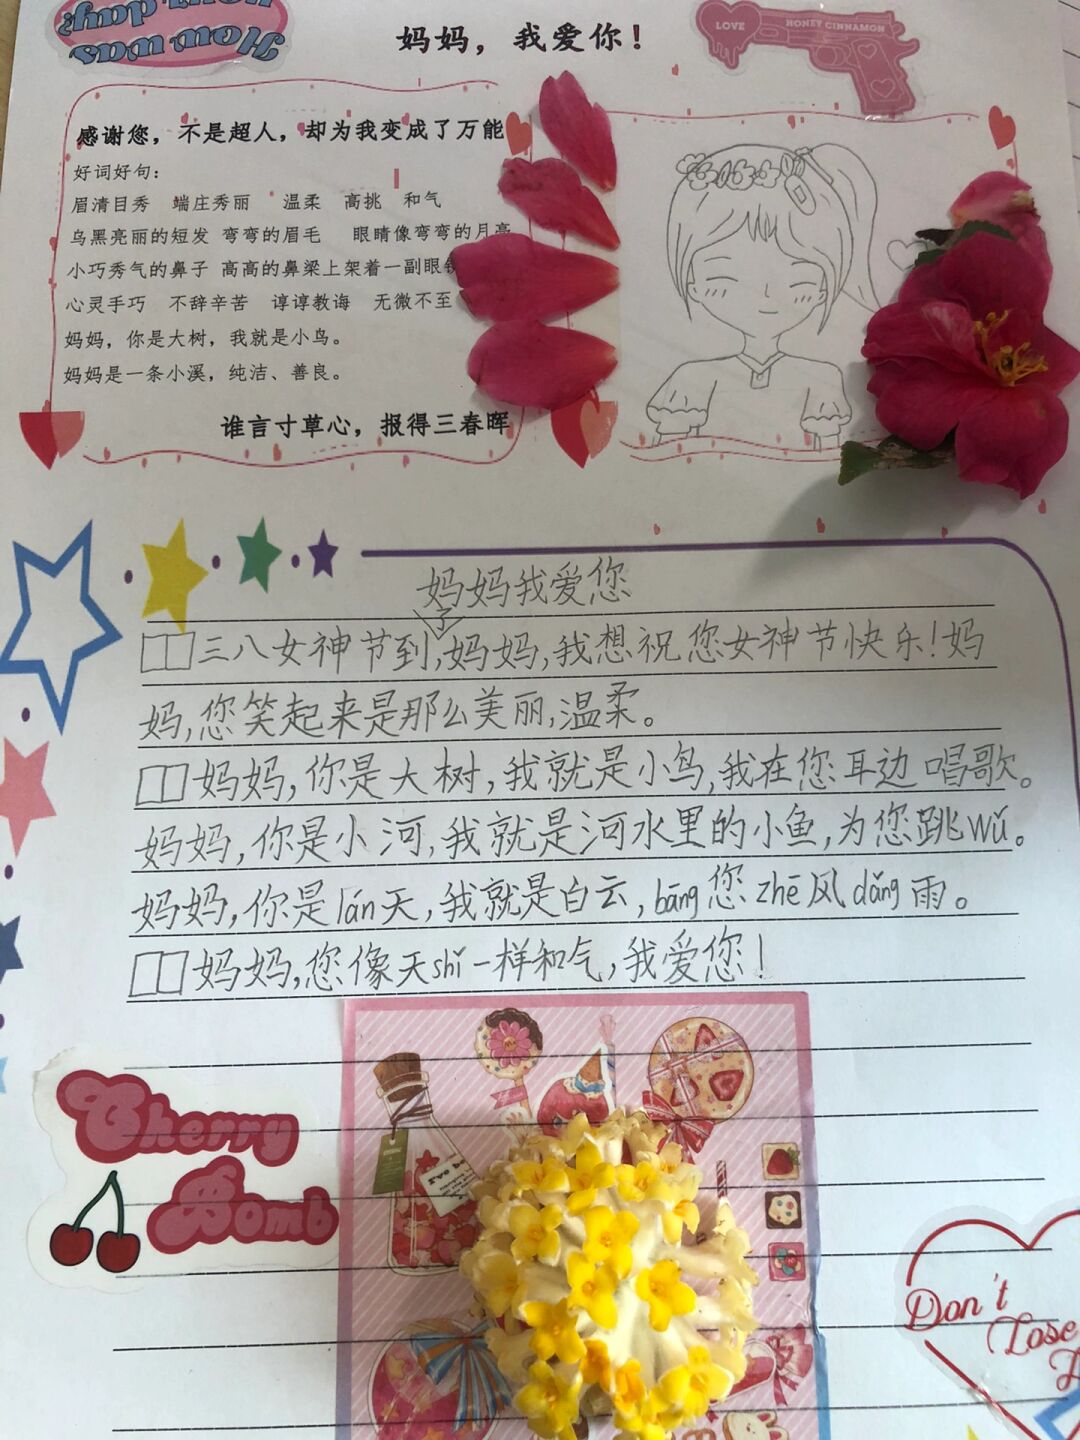 How was your day?
妈妈，我爱你！
LOVE
HONEY CINNAMON
感谢您，不是超人，却为我变成了万能
好词好句：
眉清目秀 端庄秀丽 温柔 高挑 和气
乌黑亮丽的短发 弯弯的眉毛 眼睛像弯弯的月亮
小巧秀气的鼻子 高高的鼻梁上架着一副眼镜
心灵手巧 不辞辛苦 谆谆教诲 无微不至
妈妈，你是大树，我就是小鸟。
妈妈是一条小溪，纯洁、善良。
谁言寸草心，报得三春晖
妈妈我爱您
三八女神节到了,妈妈,我想祝您女神节快乐!妈
妈,您笑起来是那么美丽,温柔。
妈妈,你是大树,我就是小鸟,我在您耳边唱歌。
妈妈,你是小河,我就是河水里的小鱼,为您跳wǔ。
妈妈,你是lán天,我就是白云,bāng您zhē风dǎng雨。
妈妈,您像天shǐ一样和气,我爱您!
Cherry
Bomb
Don't
Lose